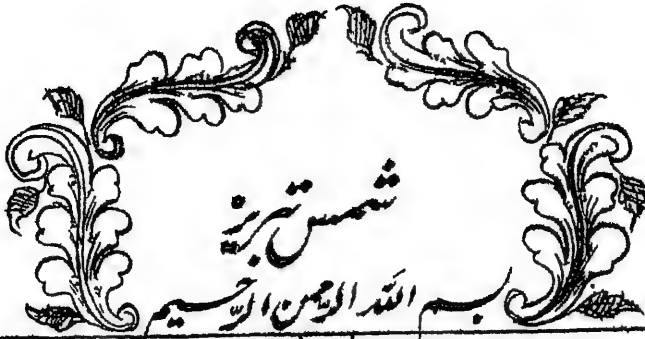 شمس تبریز
بسم اللہ الرحمن الرحیم